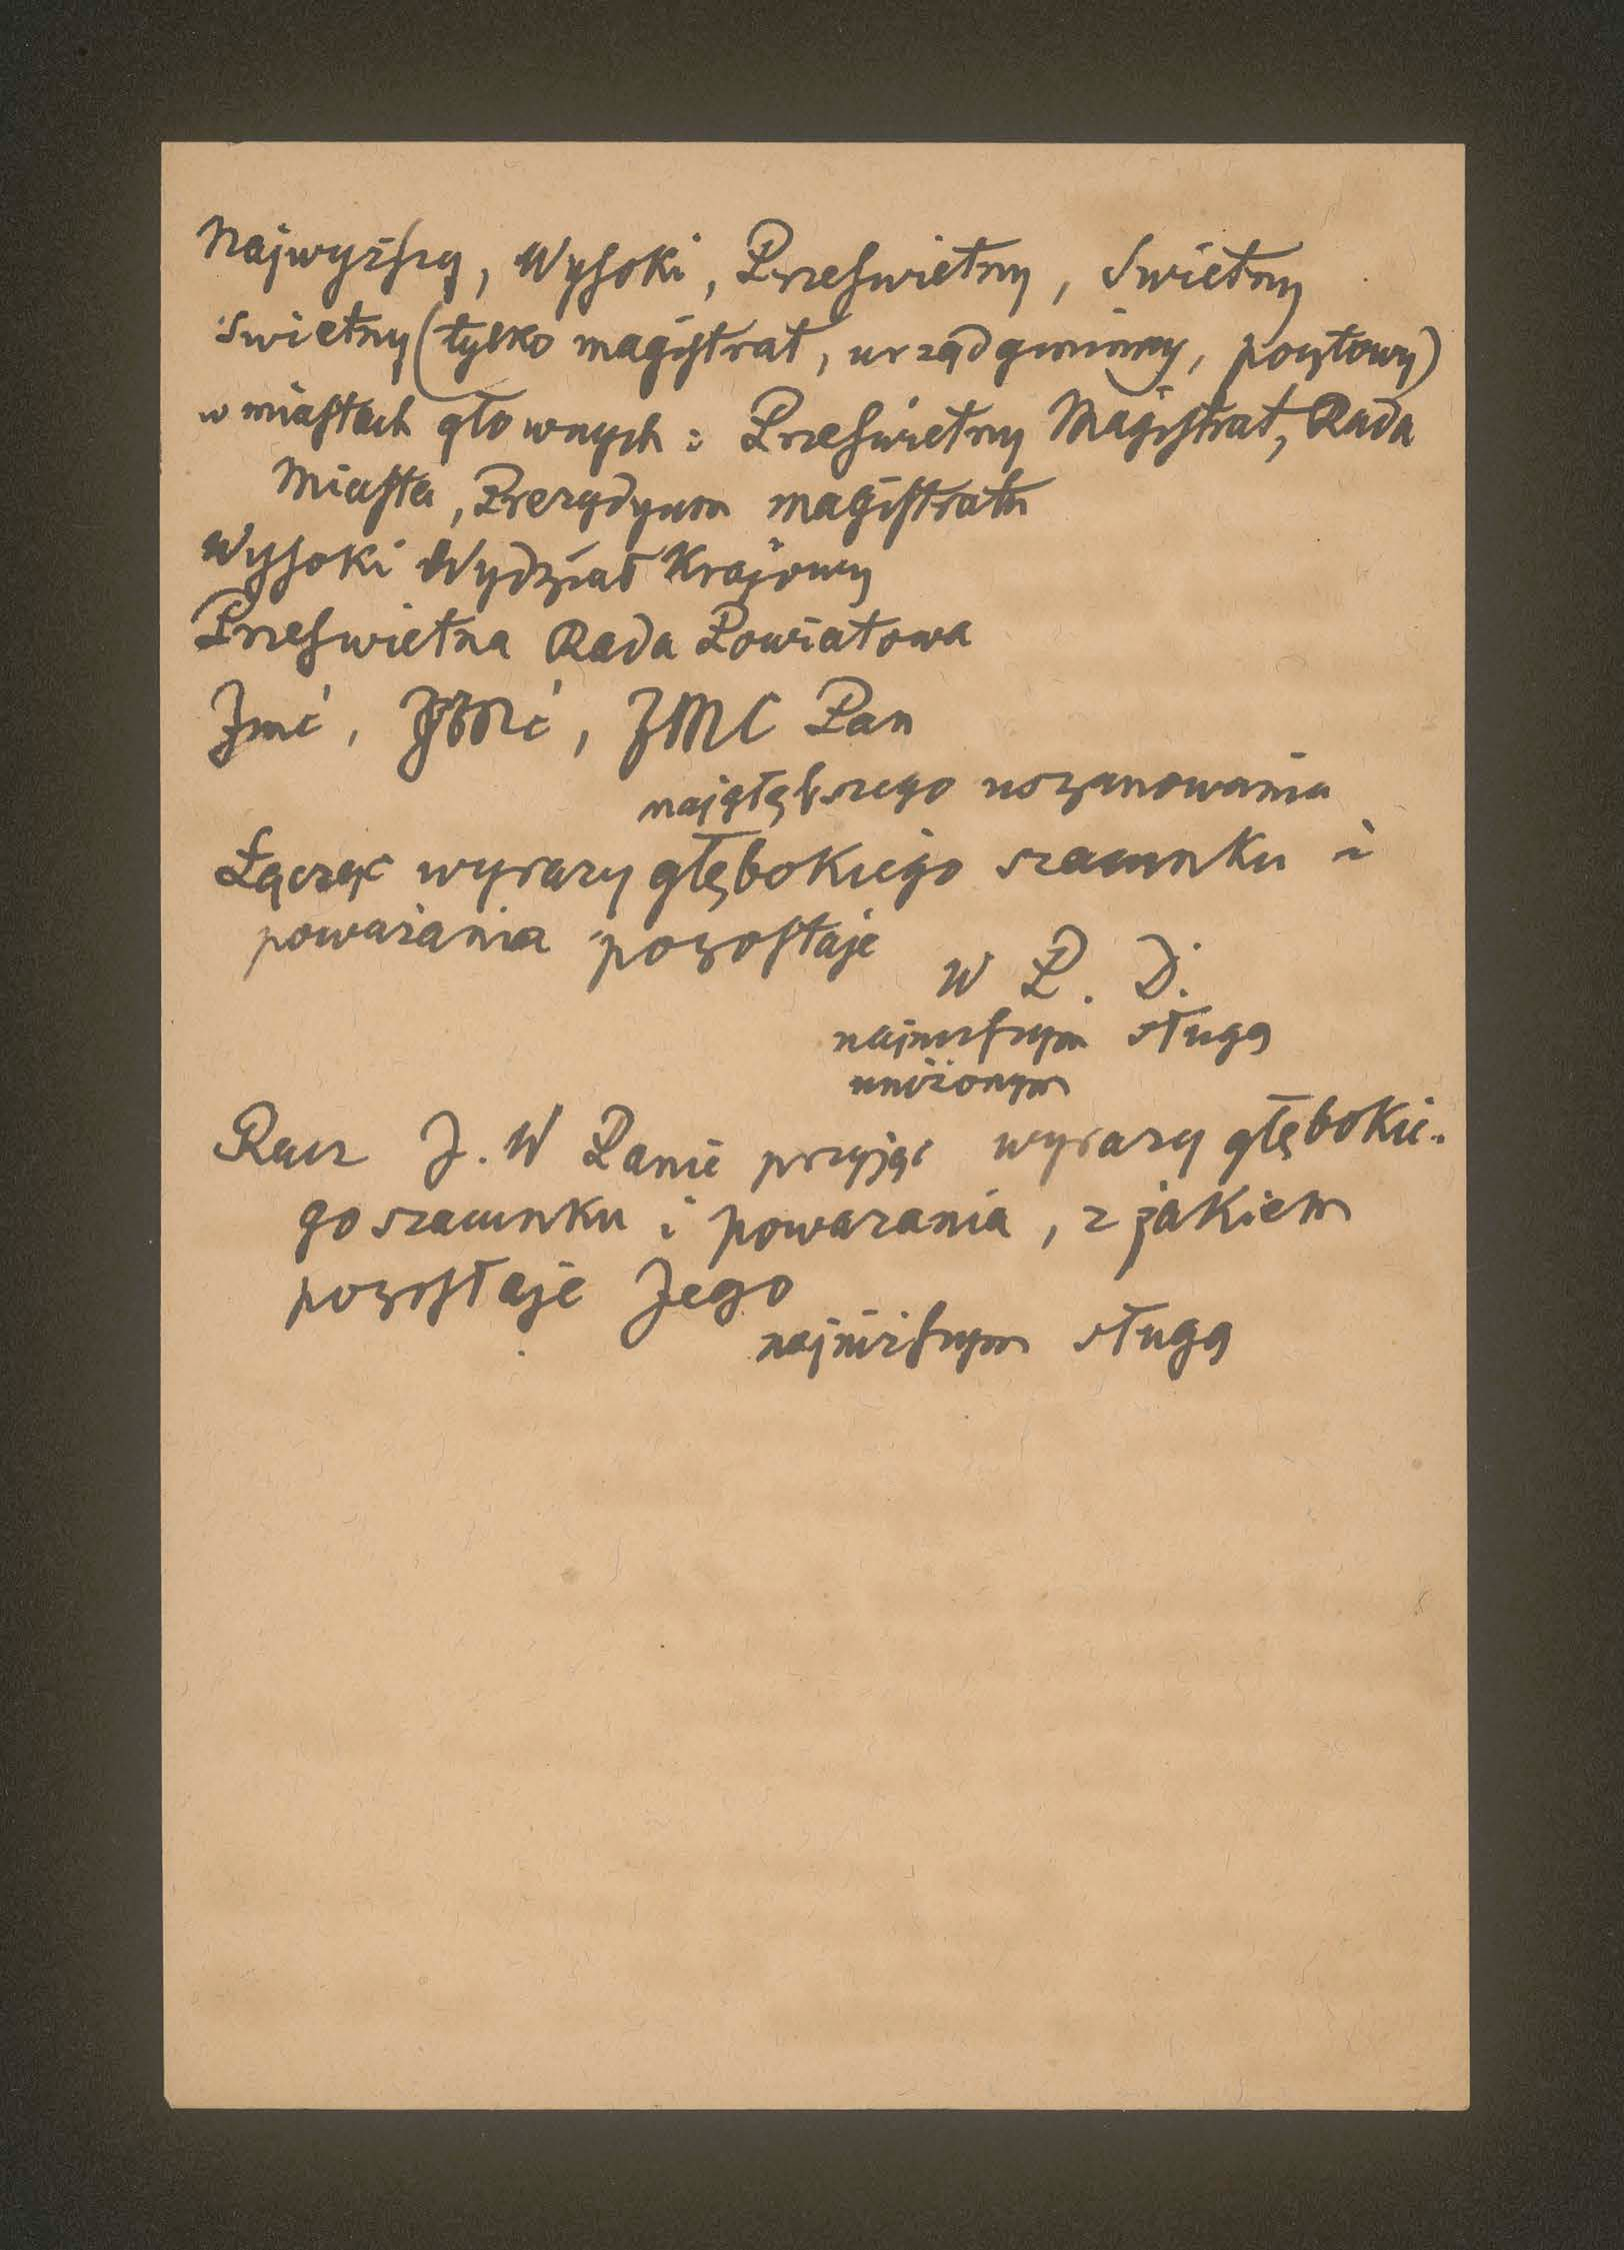 Najwyższy, Wysoki, Prześwietny, Świetny
Świetny (tylko magistrat, urząd gminny, pocztowy)
w miastach głownych: Prześwietny Magistrat, Rada
Miasta, Prezydyum magistratu
Wysoki Wydział Krajowy
Prześwietna Rada Powiatowa
Jmć, JMć, JMC Pan
najgłębszego uszanowania
Łącząc wyrazy głębokiego szacunku i
poważania pozostaje
W P. D.
najniższym sługą
uniżonym
Racz J. W Panie przyjąć wyrazy głębokie-
go szacunku i poważania, z jakiem
pozostaje Jego
najniższym sługą